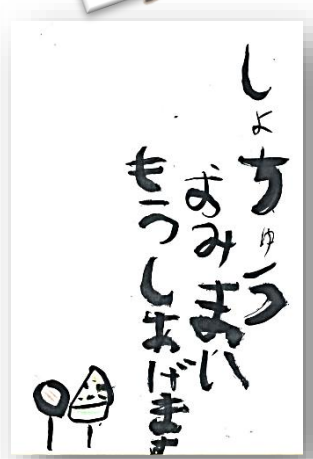 しょちゅう
おみまい
もうしあげます